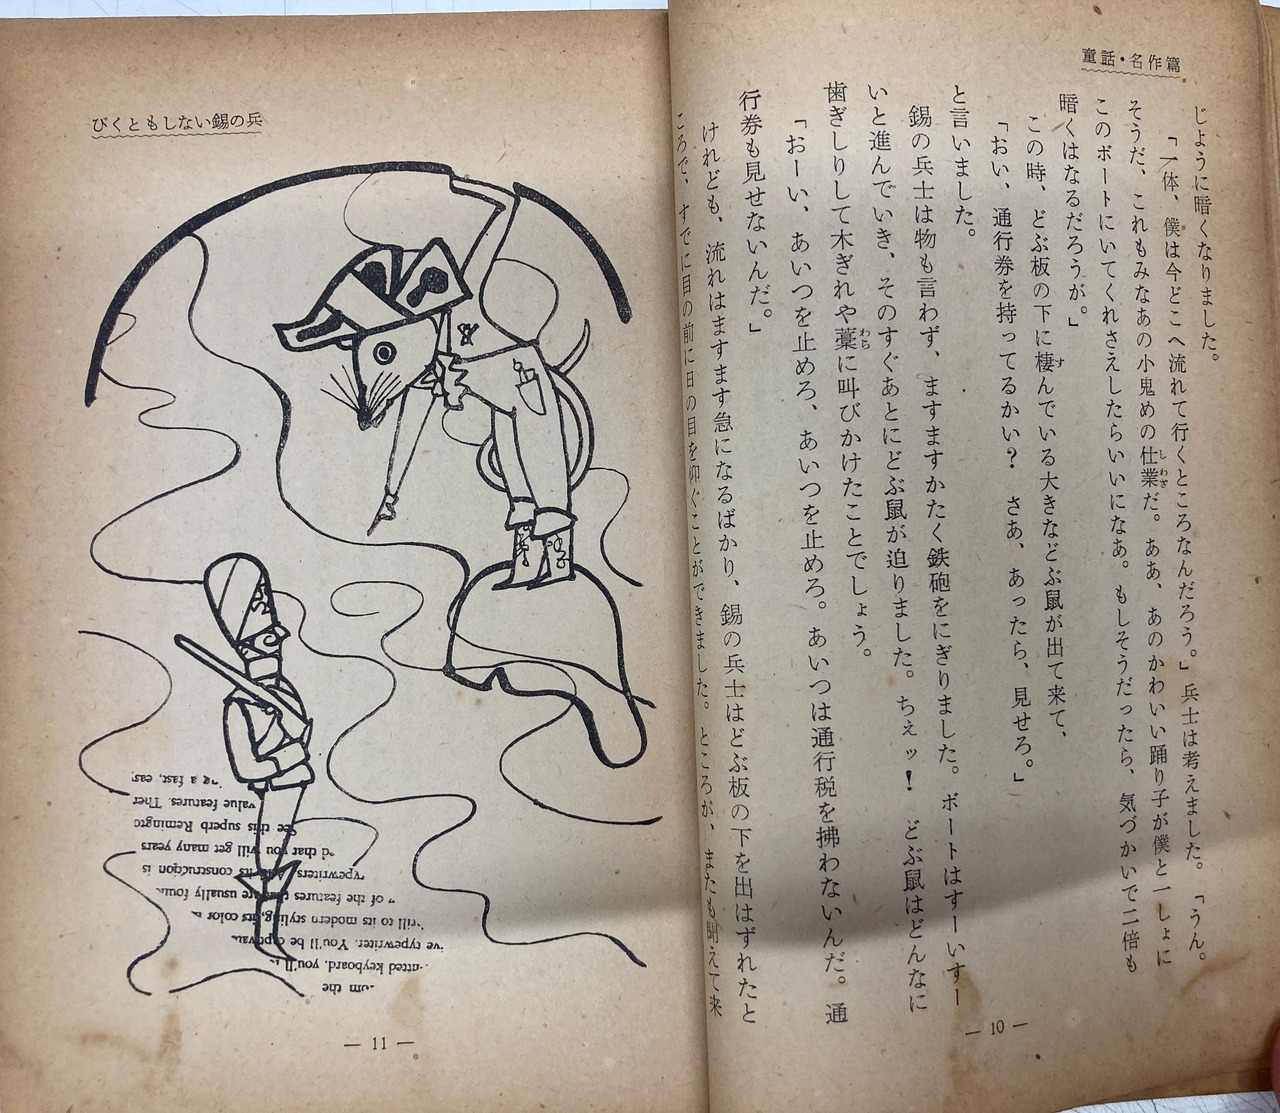 童話・名作篇
じように暗くなりました。
「一体、僕は今どこへ流れて行くところなんだろう。」兵士は考えました。「うん。
そうだ、これもみなあの小鬼めの仕業だ。ああ、あのかわいい踊り子が僕と一しょに
しわざ
このボートにいてくれさえしたらいいになあ。もしそうだったら、気づかいで二倍も
暗くはなるだろうが。」
この時、どぶ板の下に棲んでいる大きなどぶ鼠が出て来て、
す
「おい、通行券を持ってるかい? さあ、あったら、見せろ。」
と言いました。
錫の兵士は物も言わず、ますますかたく鉄砲をにぎりました。ボートはすーいすー
いと進んでいき、そのすぐあとにどぶ鼠が迫りました。ちぇッ! どぶ鼠はどんなに
歯ぎしりして木ぎれや藁に叫びかけたことでしょう。
わら
「おーい、あいつを止めろ、あいつを止めろ。あいつは通行税を拂わないんだ。通
行券も見せないんだ。」
けれども、流れはますます急になるばかり、錫の兵士はどぶ板の下を出はずれたと
ころで、すでに目の前に日の目を仰ぐことができました。ところが、またも聞えて来
— 10 —
びくともしない錫の兵
the
keyboard. you'll
typewriter. You'll be
to its modern styling, its color
of the features that are usually
And its construction is
that you will get many years
See this superb
value features.
a fast,
— 11 —